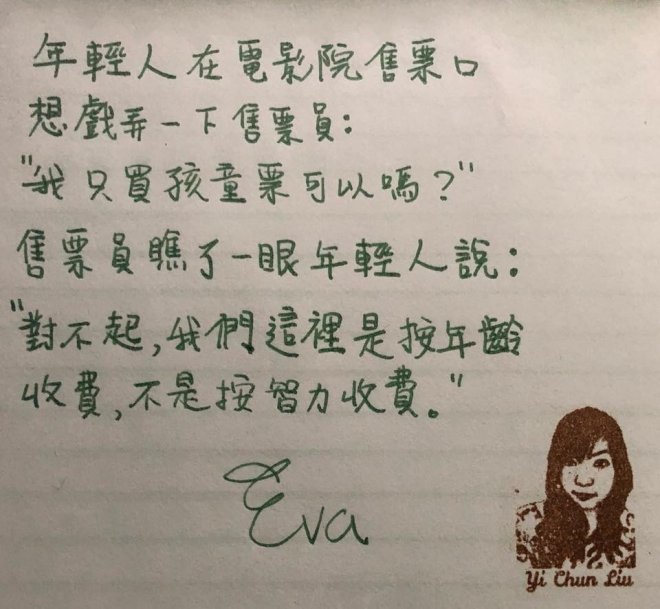 年輕人在電影院售票口
想戲弄一下售票員:
"我只買孩童票可以嗎?"
售票員瞧了一眼年輕人說:
"對不起,我們這裡是按年齡
收費,不是按智力收費。"
Eva
Yi Chun Liu